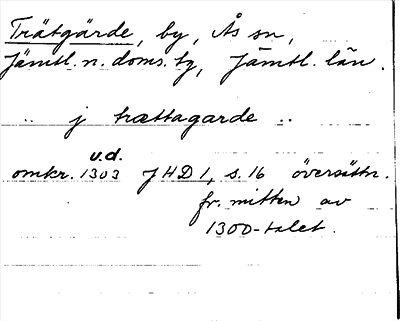 Trätgärde, by, Ås sn,
Jämtl. n. doms. tg, Jämtl. län.
.. j trættagarde ..
u.d.
omkr. 1303 JHD 1, s. 16 översättn.
fr. mitten av
1300-talet.